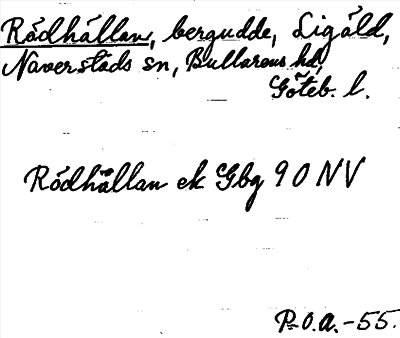 Rödhällan, bergudde, Ligäld,
Naverstads sn, Bullarens hd,
Göteb. l.
Rödhällan ek Gbg 90 NV
P.O.A.-55.